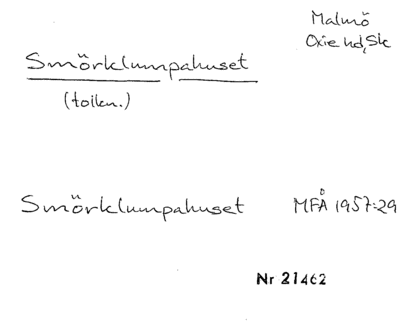 Malmö
Oxie hd, Sk
Smörklumpahuset
(tolkn.)
Smörklumpahuset MFÅ 1957:29
Nr 21462